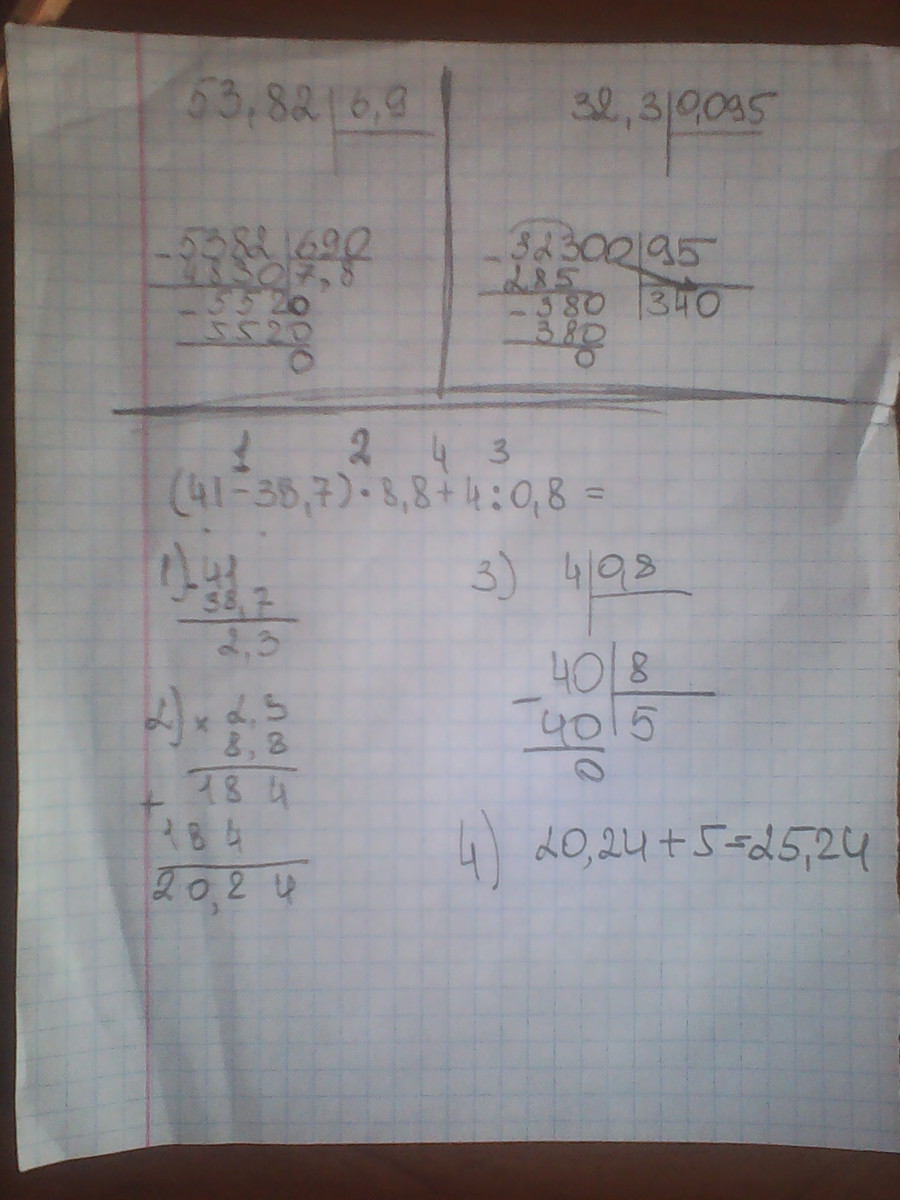 53,82 6,9
- 5382 690
4830 7,8
- 5520
5520
0
32,3 0,095
- 32300 95
285 340
- 380
380
0
1 2 4 3
(41-38,7)·8,8+4:0,8=
1) - 41
38,7
2,3
2) × 2,3
8,8
+ 184
184
20,24
3) 4 0,8
- 40 8
40 5
0
4) 20,24+5=25,24